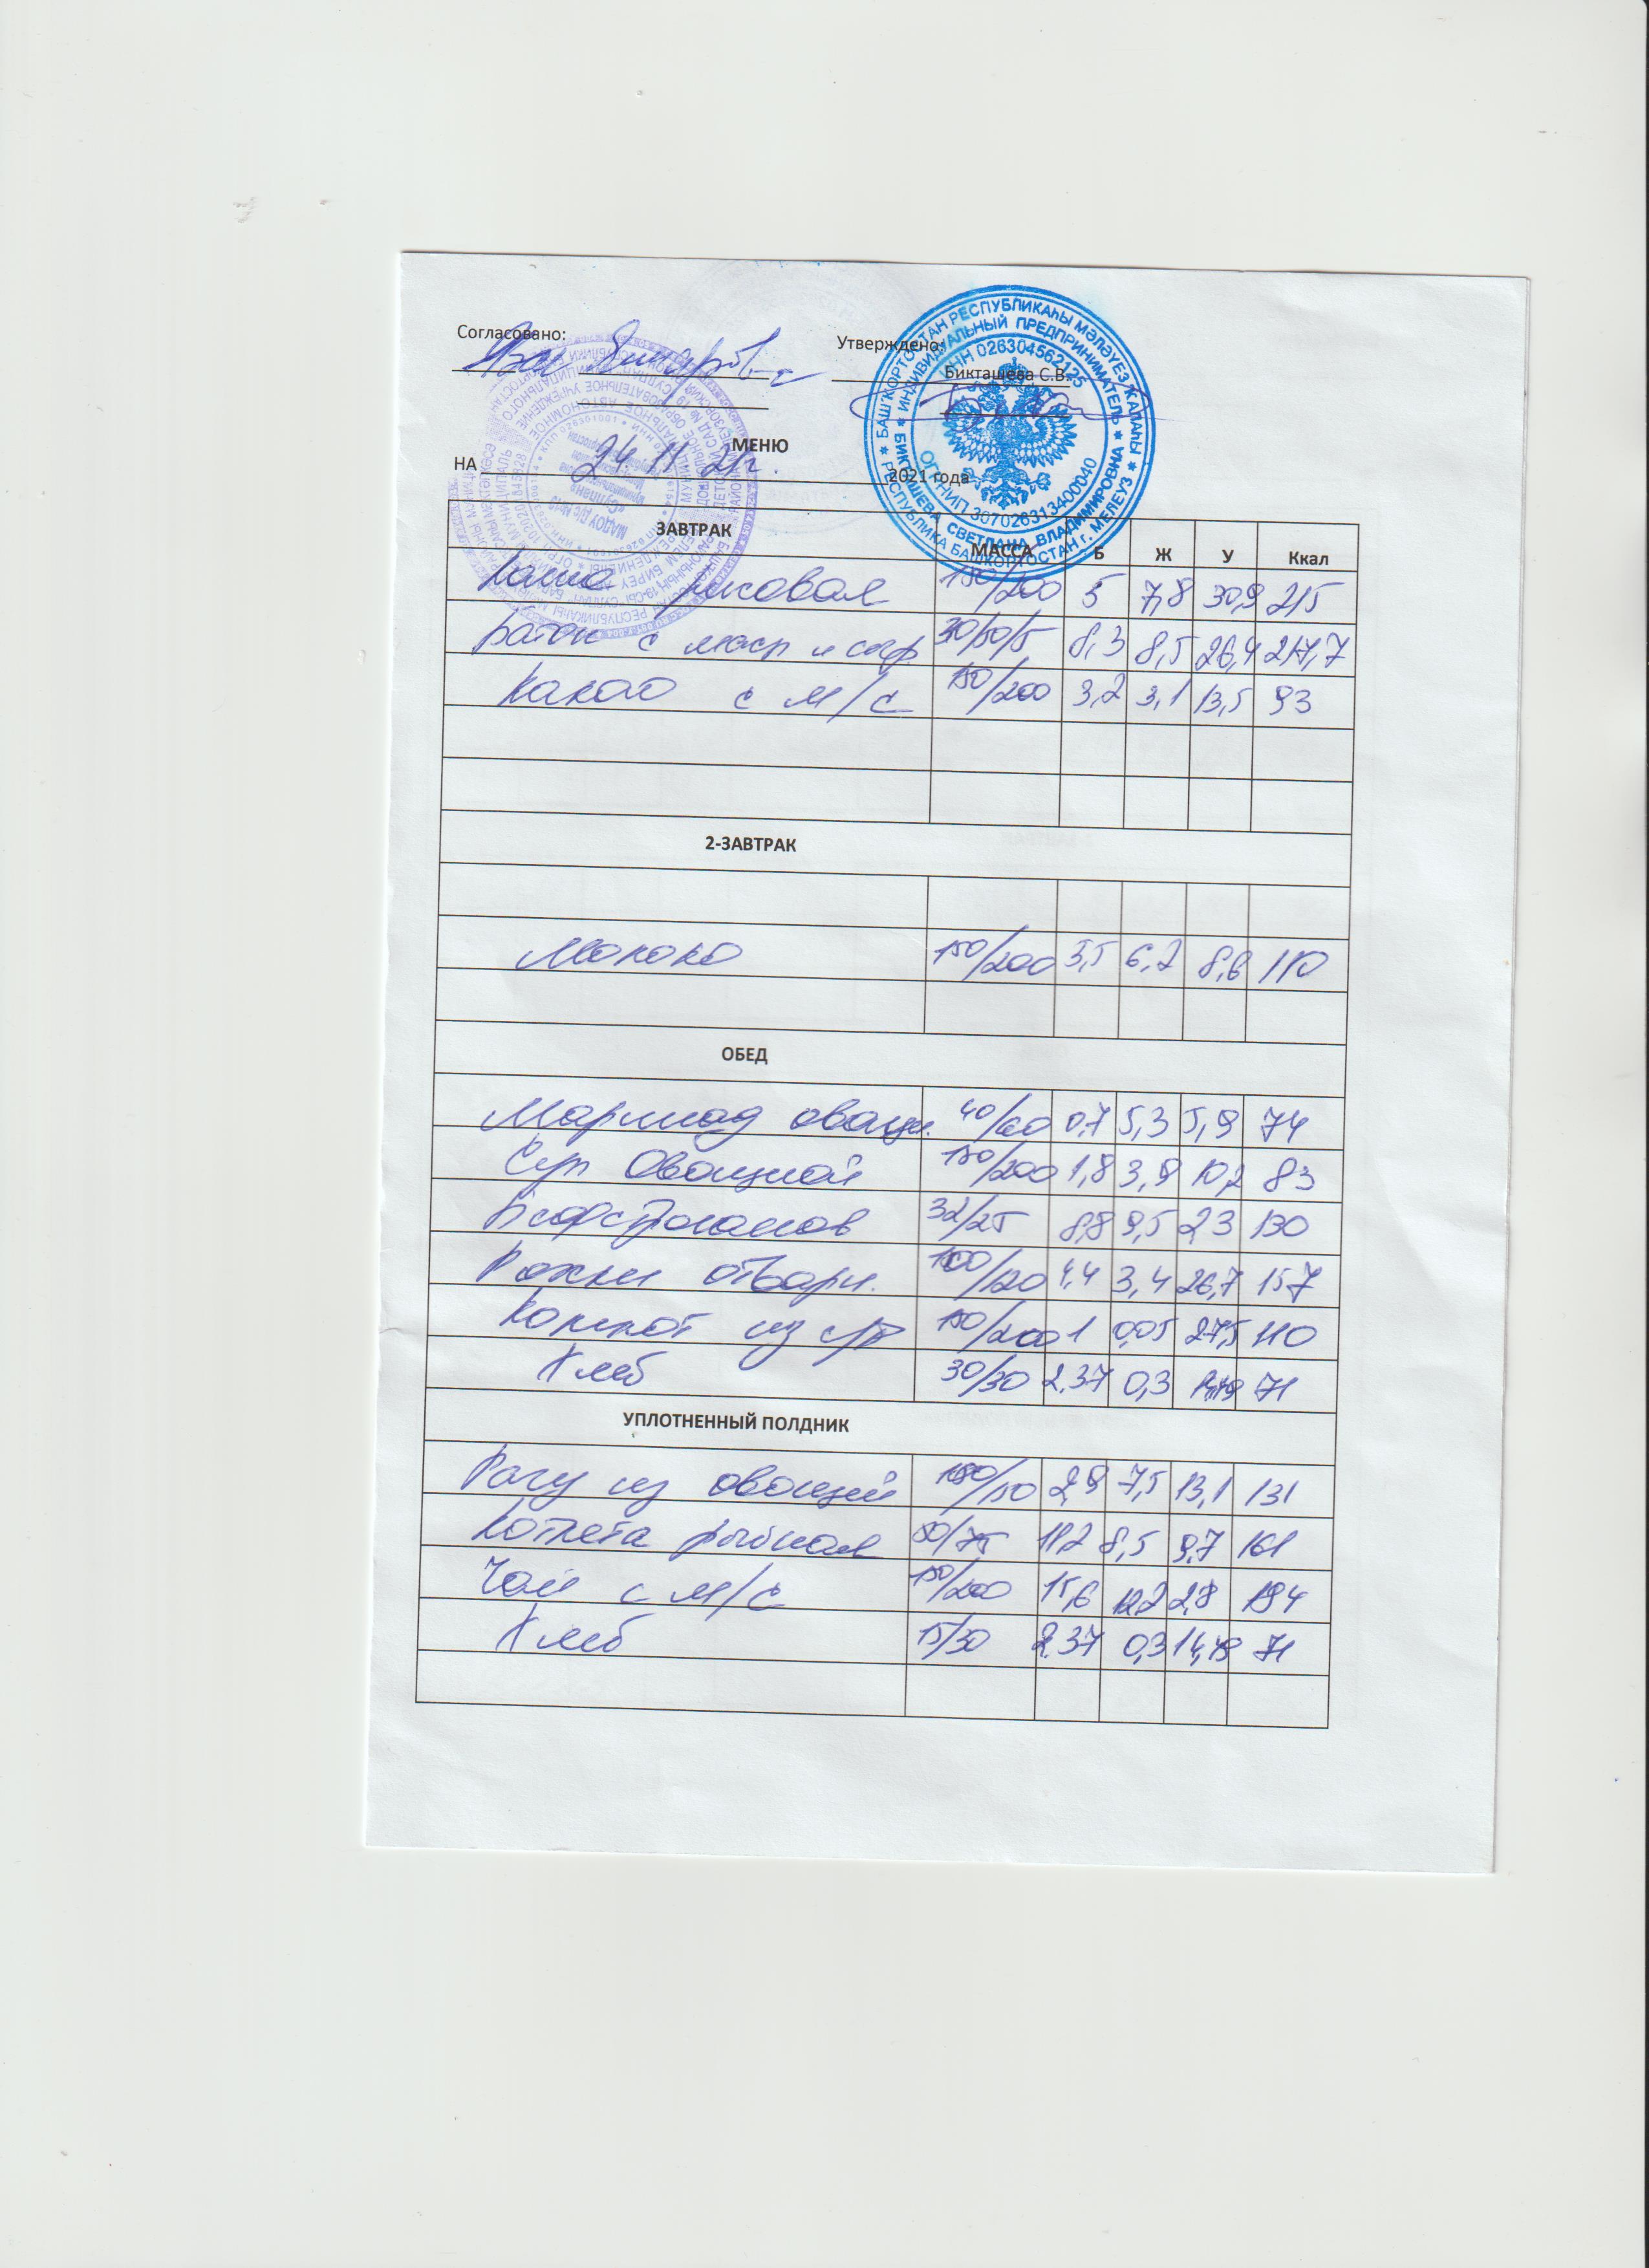 Согласовано:
Утверждено:
Бикташева С.В.
МЕНЮ
НА 24.11.21г. 2021 года
ЗАВТРАК МАССА Б Ж У Ккал
Каша рисовая 150/200 5 7,8 30,9 215
Батон с масл и сыр 30/50/5 8,3 8,5 26,4 217,7
Какао с м/с 150/200 3,2 3,1 13,5 93
2-ЗАВТРАК
Молоко 150/200 5,5 6,2 8,8 110
ОБЕД
Маринад овощн. 40/60 0,7 5,3 5,9 74
Суп Овощной 150/200 1,8 3,9 10,2 83
Бефстроганов 32/25 8,8 9,5 2,3 130
Рожки отварн. 100/120 4,4 3,4 26,7 157
Компот из с/ф 150/200 1 0,05 27,5 110
Хлеб 30/30 2.37 0,3 71
УПЛОТНЕННЫЙ ПОЛДНИК
Рагу из овощей 2,9 7,5 13,1 131
Котлета рыбная 50/75 11,2 8,5 9,7 161
Чай с м/с 150/200 15,6 2,8 194
Хлеб 15/30 2.37 0,3 14,49 71
БАШҠОРТОСТАН РЕСПУБЛИКАҺЫ МӘЛӘҮЕЗ ҠАЛАҺЫ
РЕСПУБЛИКА БАШКОРТОСТАН г. МЕЛЕУЗ
ИНДИВИДУАЛЬНЫЙ ПРЕДПРИНИМАТЕЛЬ
БИКТАШЕВА СВЕТЛАНА ВЛАДИМИРОВНА
ИНН 026304562125
ОГРНИП 307026313400040